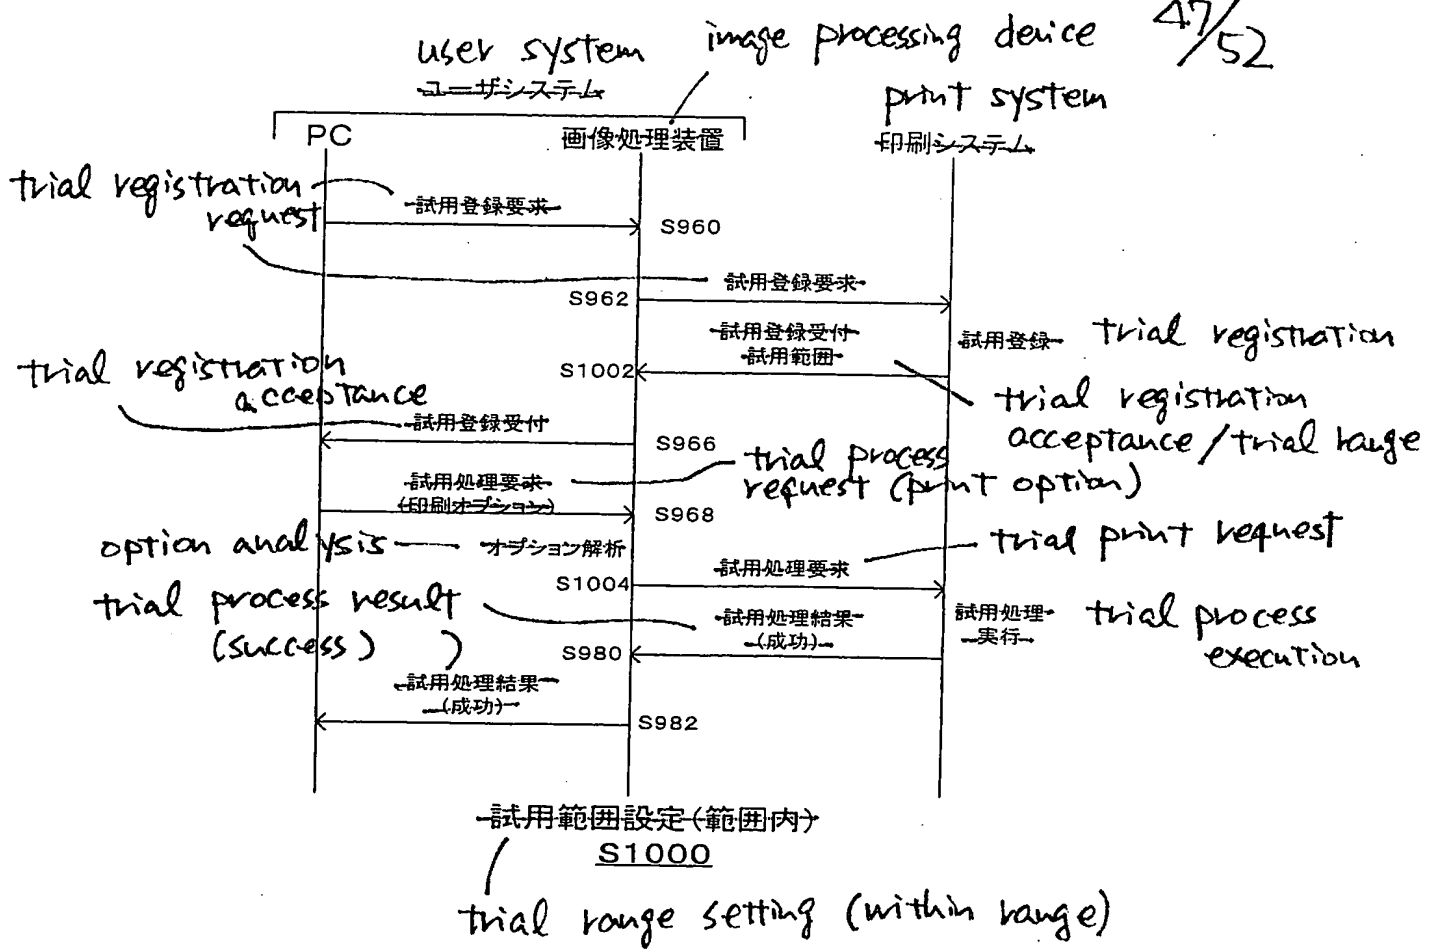 47/52
user system
image processing device
ユーザシステム
print system
PC
画像処理装置
印刷システム
trial registration
request
試用登録要求
S960
試用登録要求
S962
試用登録受付
試用範囲
試用登録
trial registration
S1002
trial registration
acceptance
trial registration
acceptance/trial range
試用登録受付
S966
trial process
request (print option)
試用処理要求
(印刷オプション)
S968
option analysis
オプション解析
trial print request
試用処理要求
S1004
trial process result
(success) )
試用処理結果
(成功)
試用処理
実行
trial process
execution
S980
試用処理結果
(成功)
S982
試用範囲設定(範囲内)
S1000
trial range setting (within range)